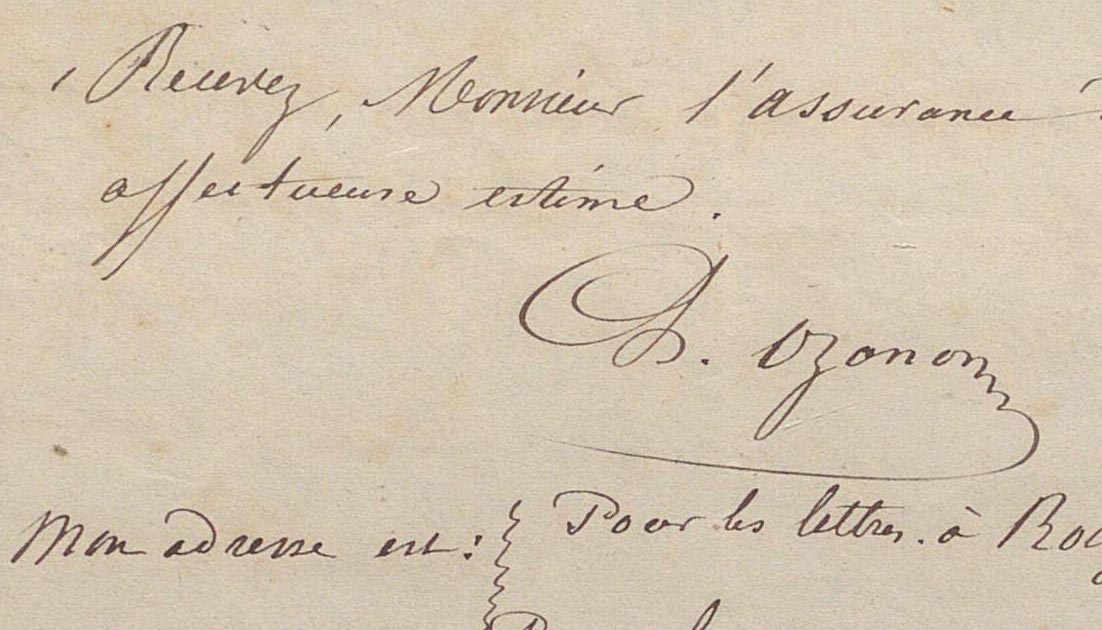 Recevez, Monsieur l'assurance
affectueuse estime.
D. Ozanon
Mon adresse est : { Pour les lettres. à